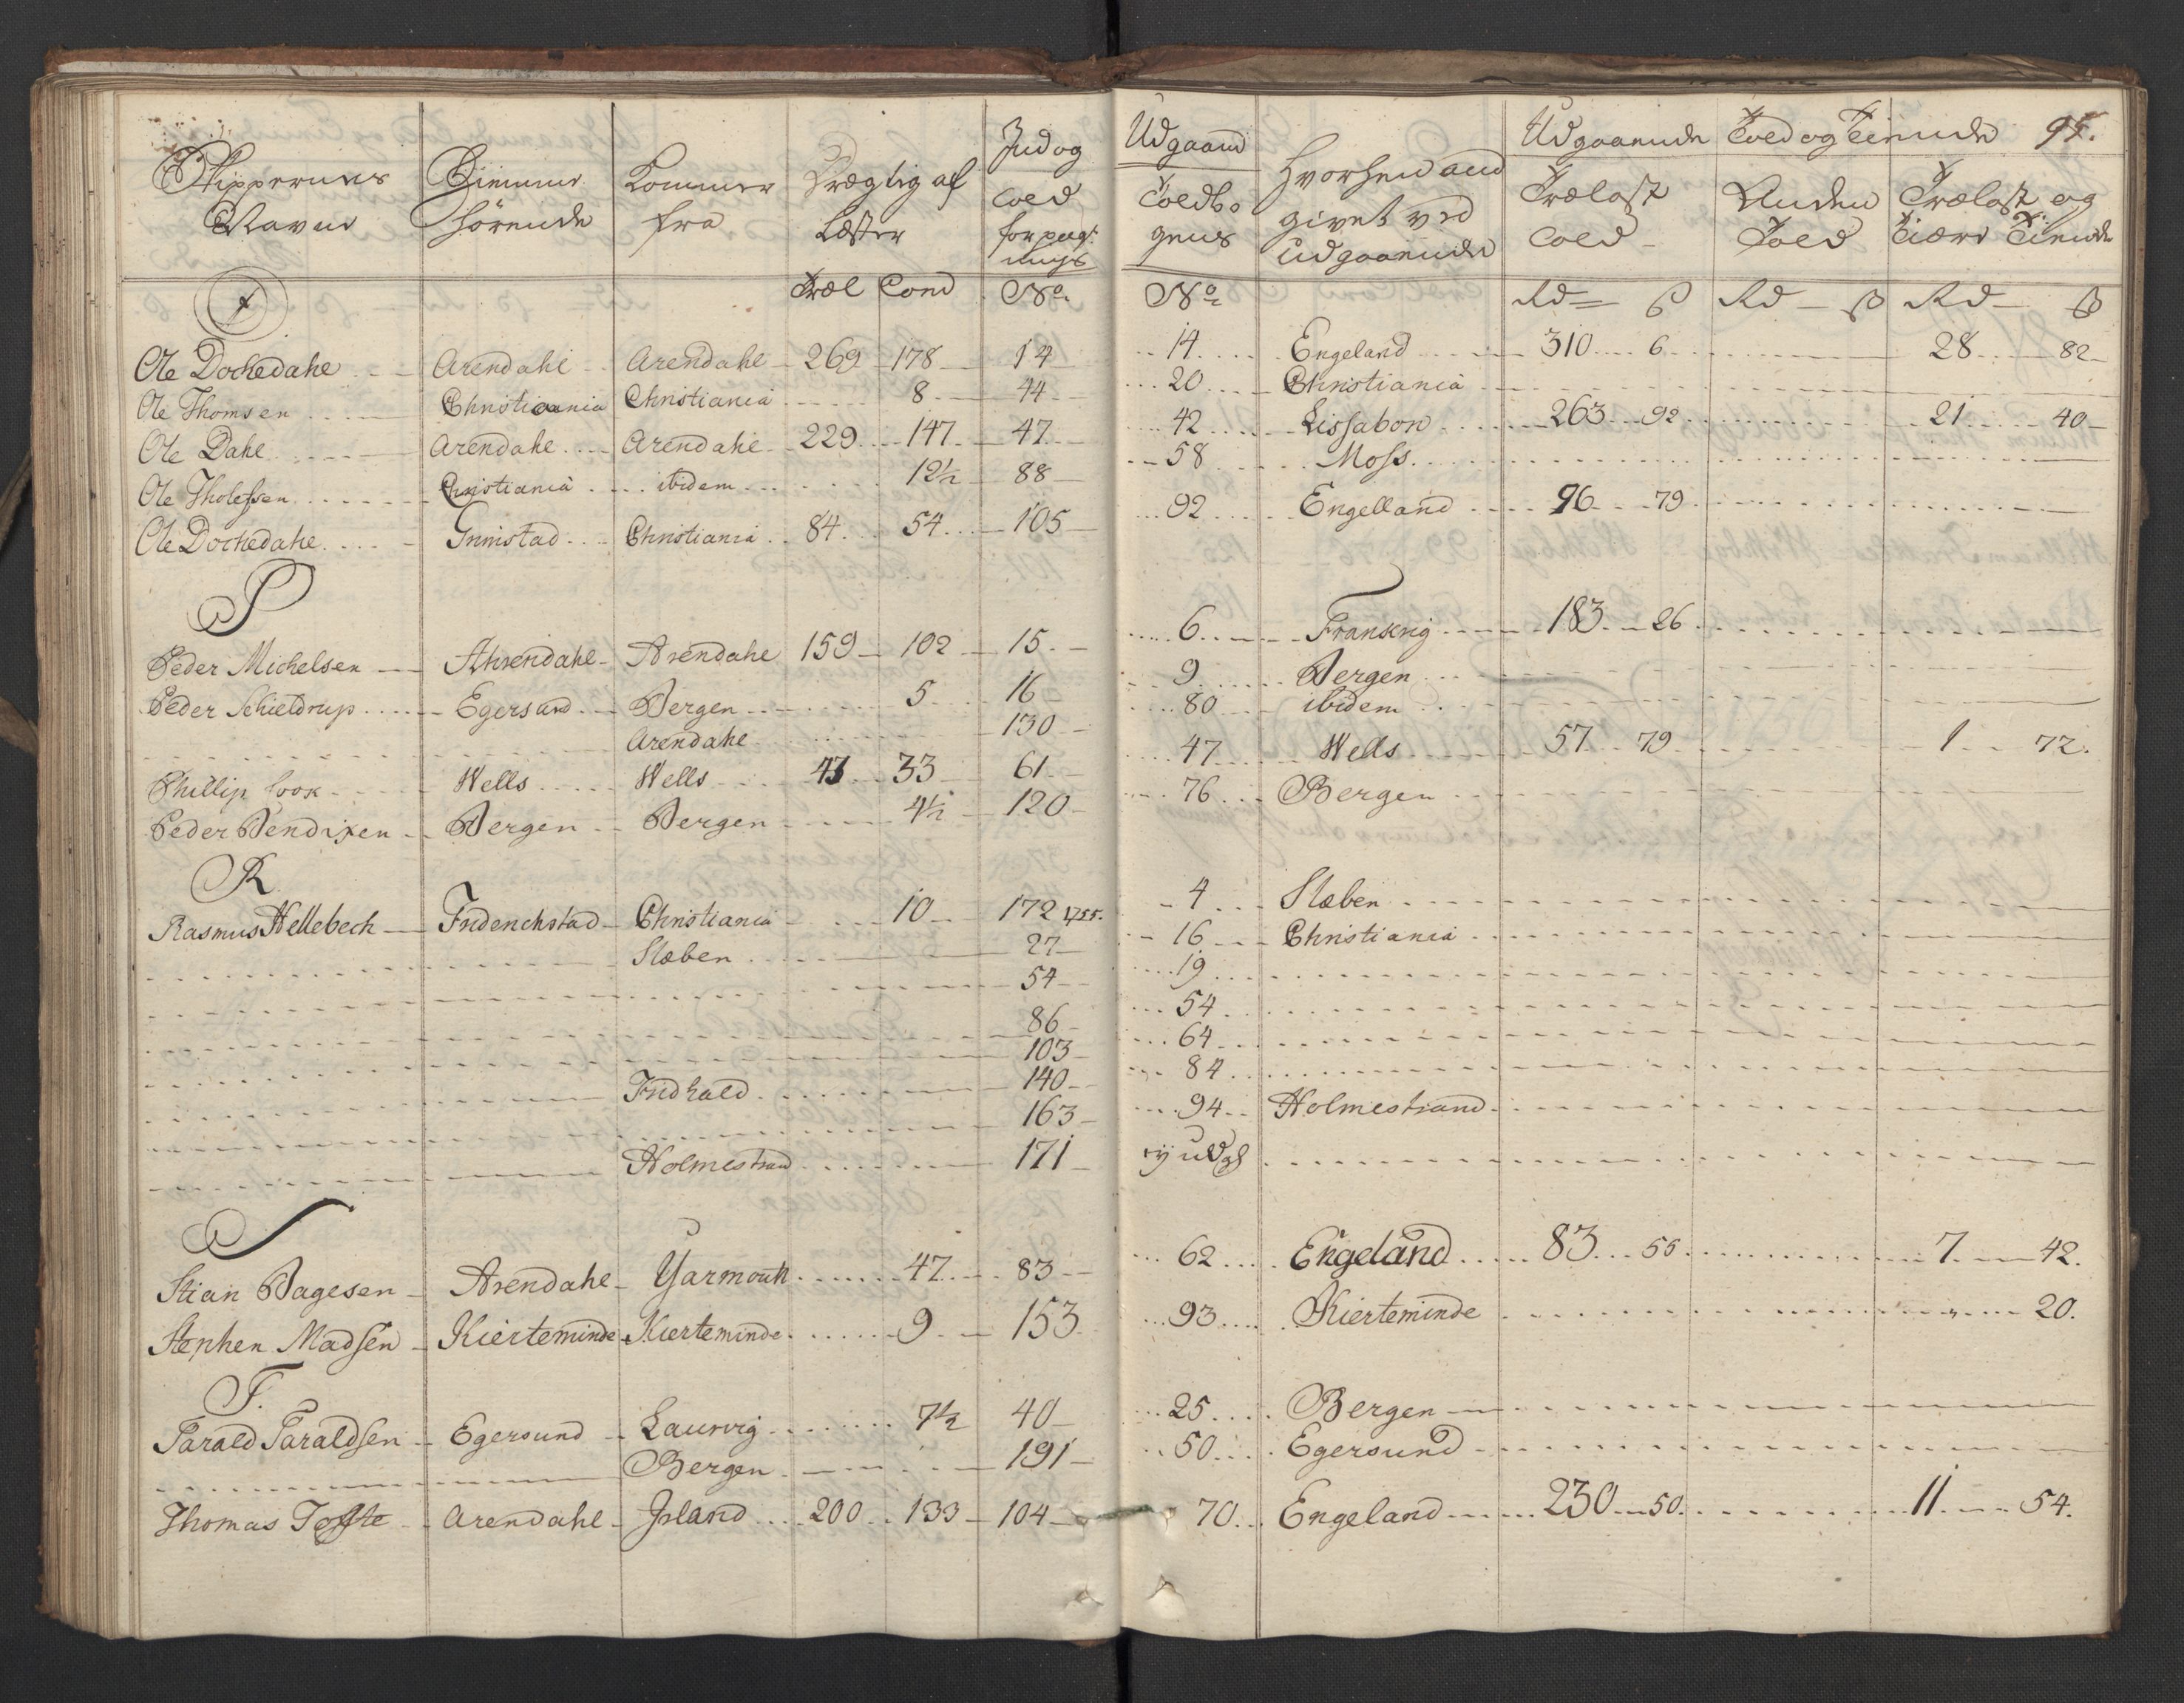 Skippernes Navne
Hiemme hørende
Kommer fra
Drægtig af Læster
Ind og
Toldbogens
Udgaaende Told og Tiende 95.
Hvorhen and givet ved Udgaaende
Trælast Told
Anden Told
Trælast og Tiære Tiende
Træl Comd No.
No. Rd ß Rd ß Rd ß
Ole Dochedahl Arendahl Arendahl 269 178 14
Ole Thomsen Christiania Christiania 8 44
Ole Dahl Arendahl Arendahl 229 147 47
Ole Tholefsen Christiania ibidem 12½ 88
Ole Dochedahl Grimstad Christiania 84 54 105
P
Peder Michelsen Ahrendahl Arendahl 159 102 15
Peder Schieldrup Egersund Bergen 5 16
Arendahl 130
Phillip Cook Wells Wells 43 33 61
Peder Bendixen Bergen Bergen 4½ 120
R
Rasmus Hellebech Friderichstad Christiania 10 172 1755.
Slæben 27
54
86
103
Fridhald 140
163
Holmestrand 171
S
Stian Bagesen Arendahl Yarmouth 47 83
Stephen Madsen Kierteminde Kierteminde 9 153
T.
Tarald Taraldsen Egersund Laurvig 7½ 40
Bergen 191
Thomas Tofte Arendahl Irland 200 133 104
14 Engeland 310 6 28 82
20 Christiania
42 Lissabon 263 92 21 40
58 Moss
92 Engelland 96 79
6 Frankrig 183 26
9 Bergen
80 ibidem
47 Wells 57 79 1 72.
76 Bergen
4 Slæben
16 Christiania
19
54
64
84
94 Holmestrand
62 Engeland 83 55 7 42.
93 Kierteminde " 20.
25 Bergen
50 Egersund
70 Engeland 230 50 11 54.